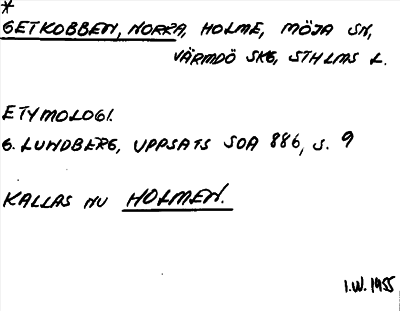 *
GETKOBBEN, NORRA, HOLME, MÖJA SN,
VÄRMDÖ SKG, STHLMS L.
ETYMOLOGI.
G. LUNDBERG, UPPSATS SOA 886, S. 9
KALLAS NU HOLMEN.
I.W. 1955